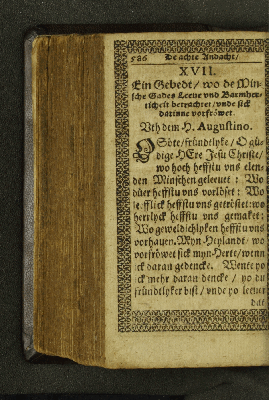 586 De achte Andacht,
XVII.
Ein Gebedt / wo de Min-
sche Gades Leeve vnd Barmher-
ticheit betrachtet / vnde sick
darinne vorfröwet.
Vth dem H. Augustino.
OSöte / fründtlyke / O gü-
dige HErr Jesu Christe /
wo hoch hefftu vns elen-
den Minschen geleuet: Wo
düer hefftu vns vorlöset: Wo
hefftu vns getröstet: wo
herrlyck hefftu vns gemaket:
Wo geweldichlyken hefftu vns
vorhauen. Myn Heylandt / wo
vorfröwet sick myn Herte / wenn
ick daran gedencke. Wente yo
ick mehr daran dencke / yo du
fründtlyker bist / vnde yo leeuer
dat